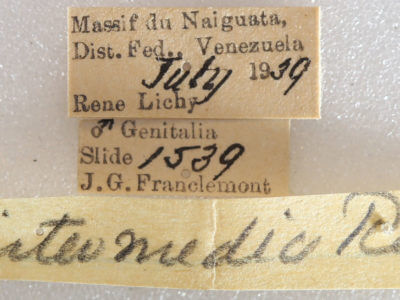 Massif du Naiguata,
Dist. Fed., Venezuela
July 1939
Rene Lichy
♂ Genitalia
Slide 1539
J. G. Franclemont